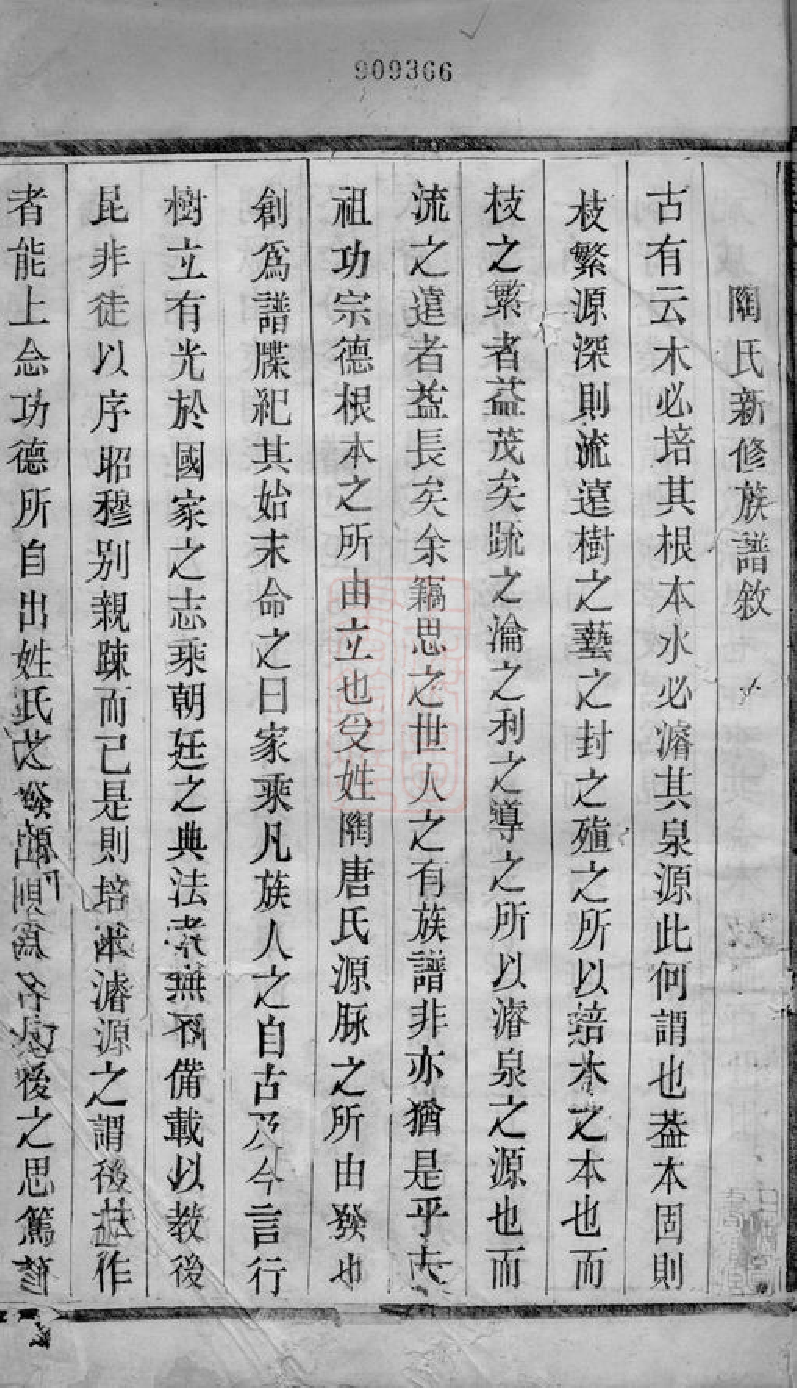 909366
陶氏新修族譜敘
古有云木必培其根本水必濬其泉源此何謂也葢本固則
枝繁源深則流遠樹之藝之封之殖之所以培木之本也而
枝之繁者益茂矣疏之瀹之利之導之所以濬泉之源也而
流之遠者益長矣余竊思之世人之有族譜非亦猶是乎夫
祖功宗德根本之所由立也受姓陶唐氏源脉之所由發也
創爲譜牒紀其始末命之曰家乘凡族人之自古及今言行
樹立有光於國家之志乘朝廷之典法者無不備載以教後
昆非徒以序昭穆别親疎而已是則培木濬源之謂後世作
者能上念功德所自出姓氏之發源 後之思篤